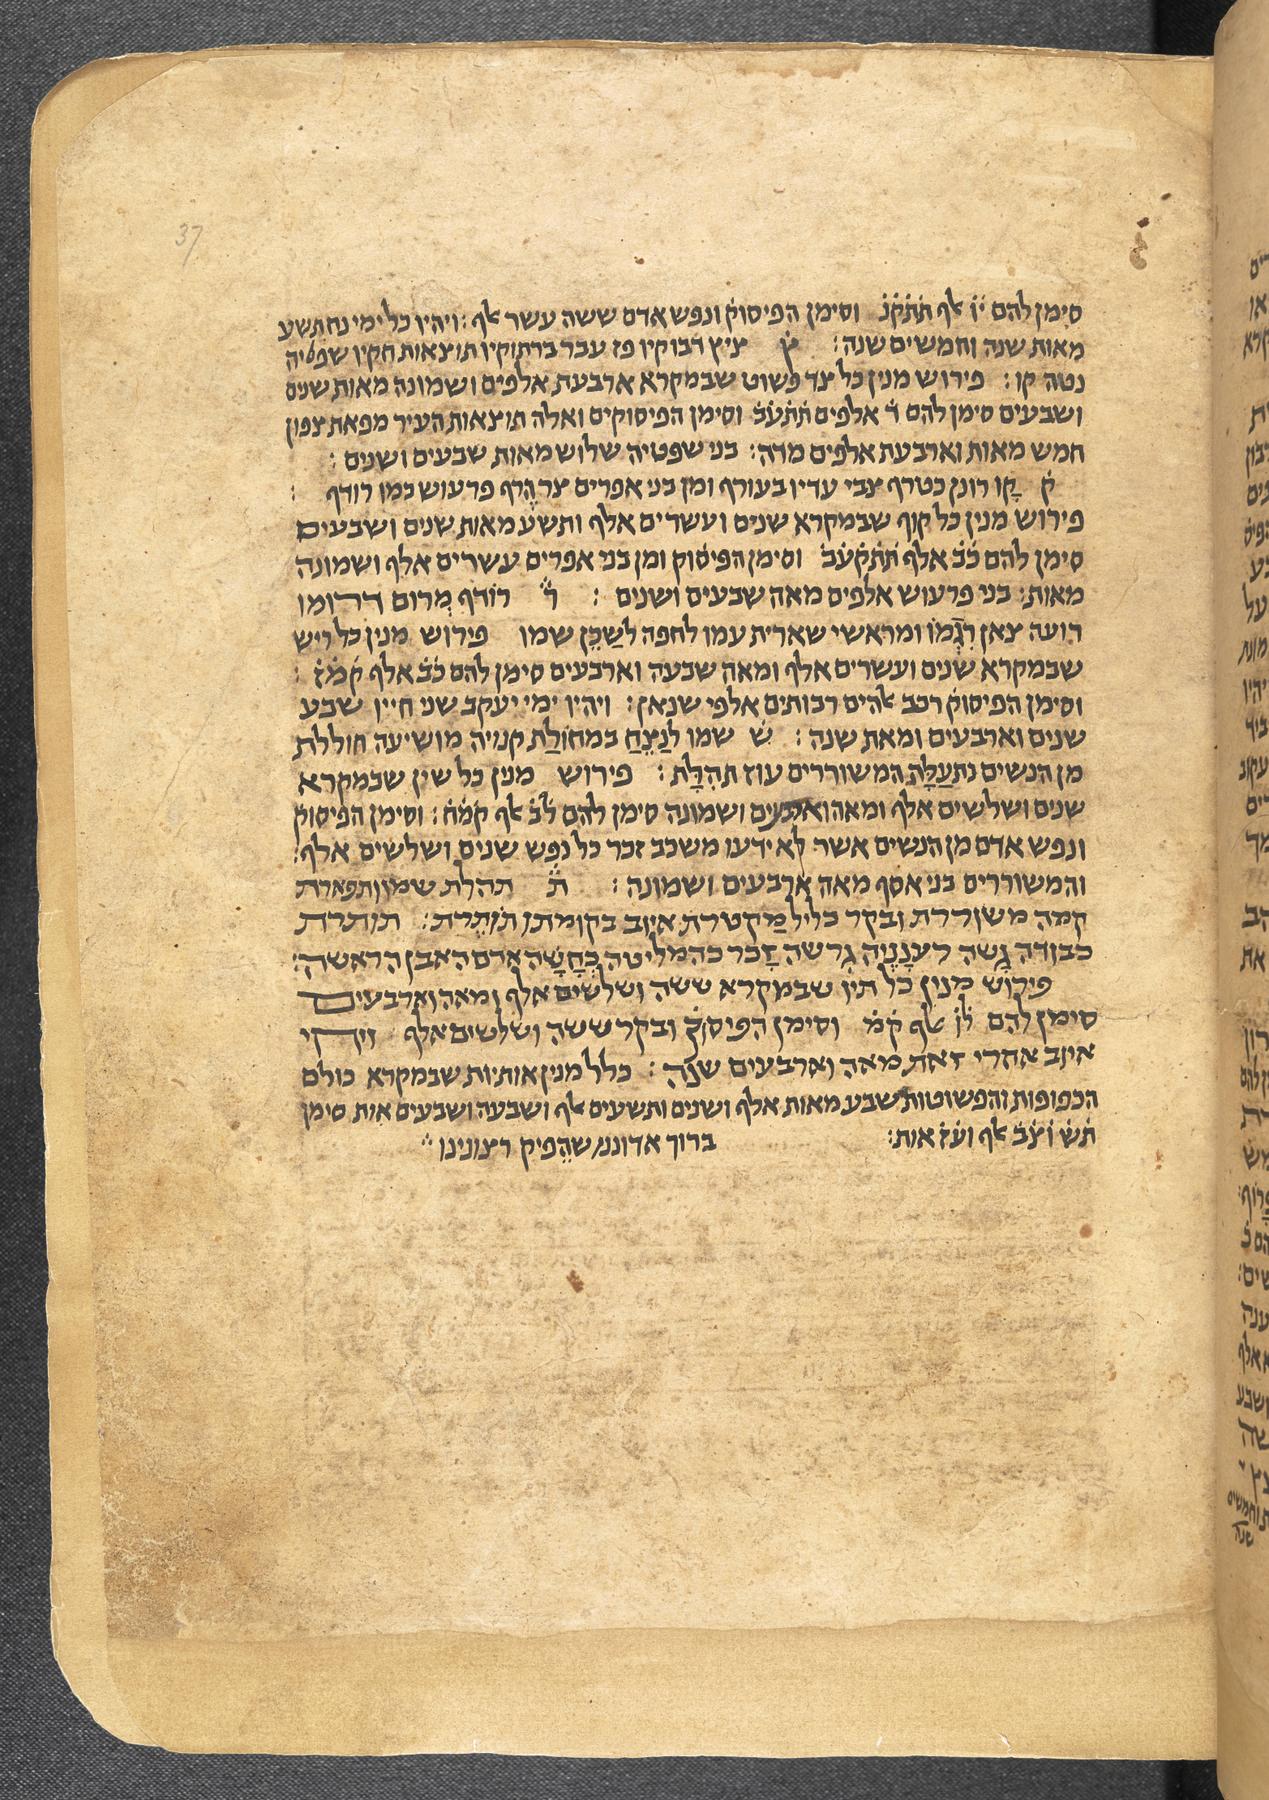 37
סימן להם יו אלף תתקנ וסימן הפיסוק ונפש אדם ששה עשר אלף : ויהיו כל ימי נח תשע
מאות שנה וחמשים שנה : ץ ציץ רבוקיו פז עבר ברתוקיו תוצאות חקיו שפטיה
נטה קו : פירוש מנין כל צד פשוט שבמקרא ארבעת אלפים ושמונה מאות שנים
ושבעים סימן להם ד אלפים תתעב וסימן הפיסוקים ואלה תוצאות העיר מפאת צפון
חמש מאות וארבעת אלפים מדה : בני שפטיה שלוש מאות שבעים ושנים :
ק קו רונן כטרף צבי עדיו בעורף ומן בני אפרים צר הרף פרעוש כמו רודף :
פירוש מנין כל קוף שבמקרא שנים ועשרים אלף ותשע מאות שנים ושבעים
סימן להם כב אלף תתקעב וסימן הפיסוק ומן בני אפרים עשרים אלף ושמונה
מאות : בני פרעוש אלפים מאה שבעים ושנים : ר רודף מרום דהומו
רועה צאן רגמו ומראשי שארית עמו לחפה לשכן שמו פירוש מנין כל ריש
שבמקרא שנים ועשרים אלף ומאה שבעה וארבעים סימן להם כב אלף קמז :
וסימן הפיסוק רכב אלהים רבותים אלפי שנאן : ויהיו ימי יעקב שני חייו שבע
שנים וארבעים ומאת שנה : ש שמו לנצח במחולת קנויה מושיעה חוללת
מן הנשים נתעלה המשוררים עוז תהלת : פירוש מנין כל שין שבמקרא
שנים ושלשים אלף ומאה וארבעים ושמונה סימן להם לב אלף קמח : וסימן הפיסוק
ונפש אדם מן הנשים אשר לא ידעו משכב זכר כל נפש שנים ושלשים אלף :
והמשוררים בני אסף מאה ארבעים ושמונה : ת תהלת שמו ותפארת
קמה משוררת ובקר כליל מקטרת איוב בקומתו תותרת : תותרת
כבודה גשה לענניה גרשה זכר כהמליטה כחשה אדם האבן הראשה :
פירוש מנין כל תיו שבמקרא ששה ושלשים אלף ומאה וארבעים
סימן להם לו אלף קמ וסימן הפיסוק ובקר ששה ושלשים אלף ויחי
איוב אחרי זאת מאה וארבעים שנה : כלל מנין אותיות שבמקרא כולם
הכפופות והפשוטות שבע מאות אלף ושנים ותשעים אלף ושבעה ושבעים אות סימן
תש וצב אלף ועז אות : ברוך שהפיק רצונינו